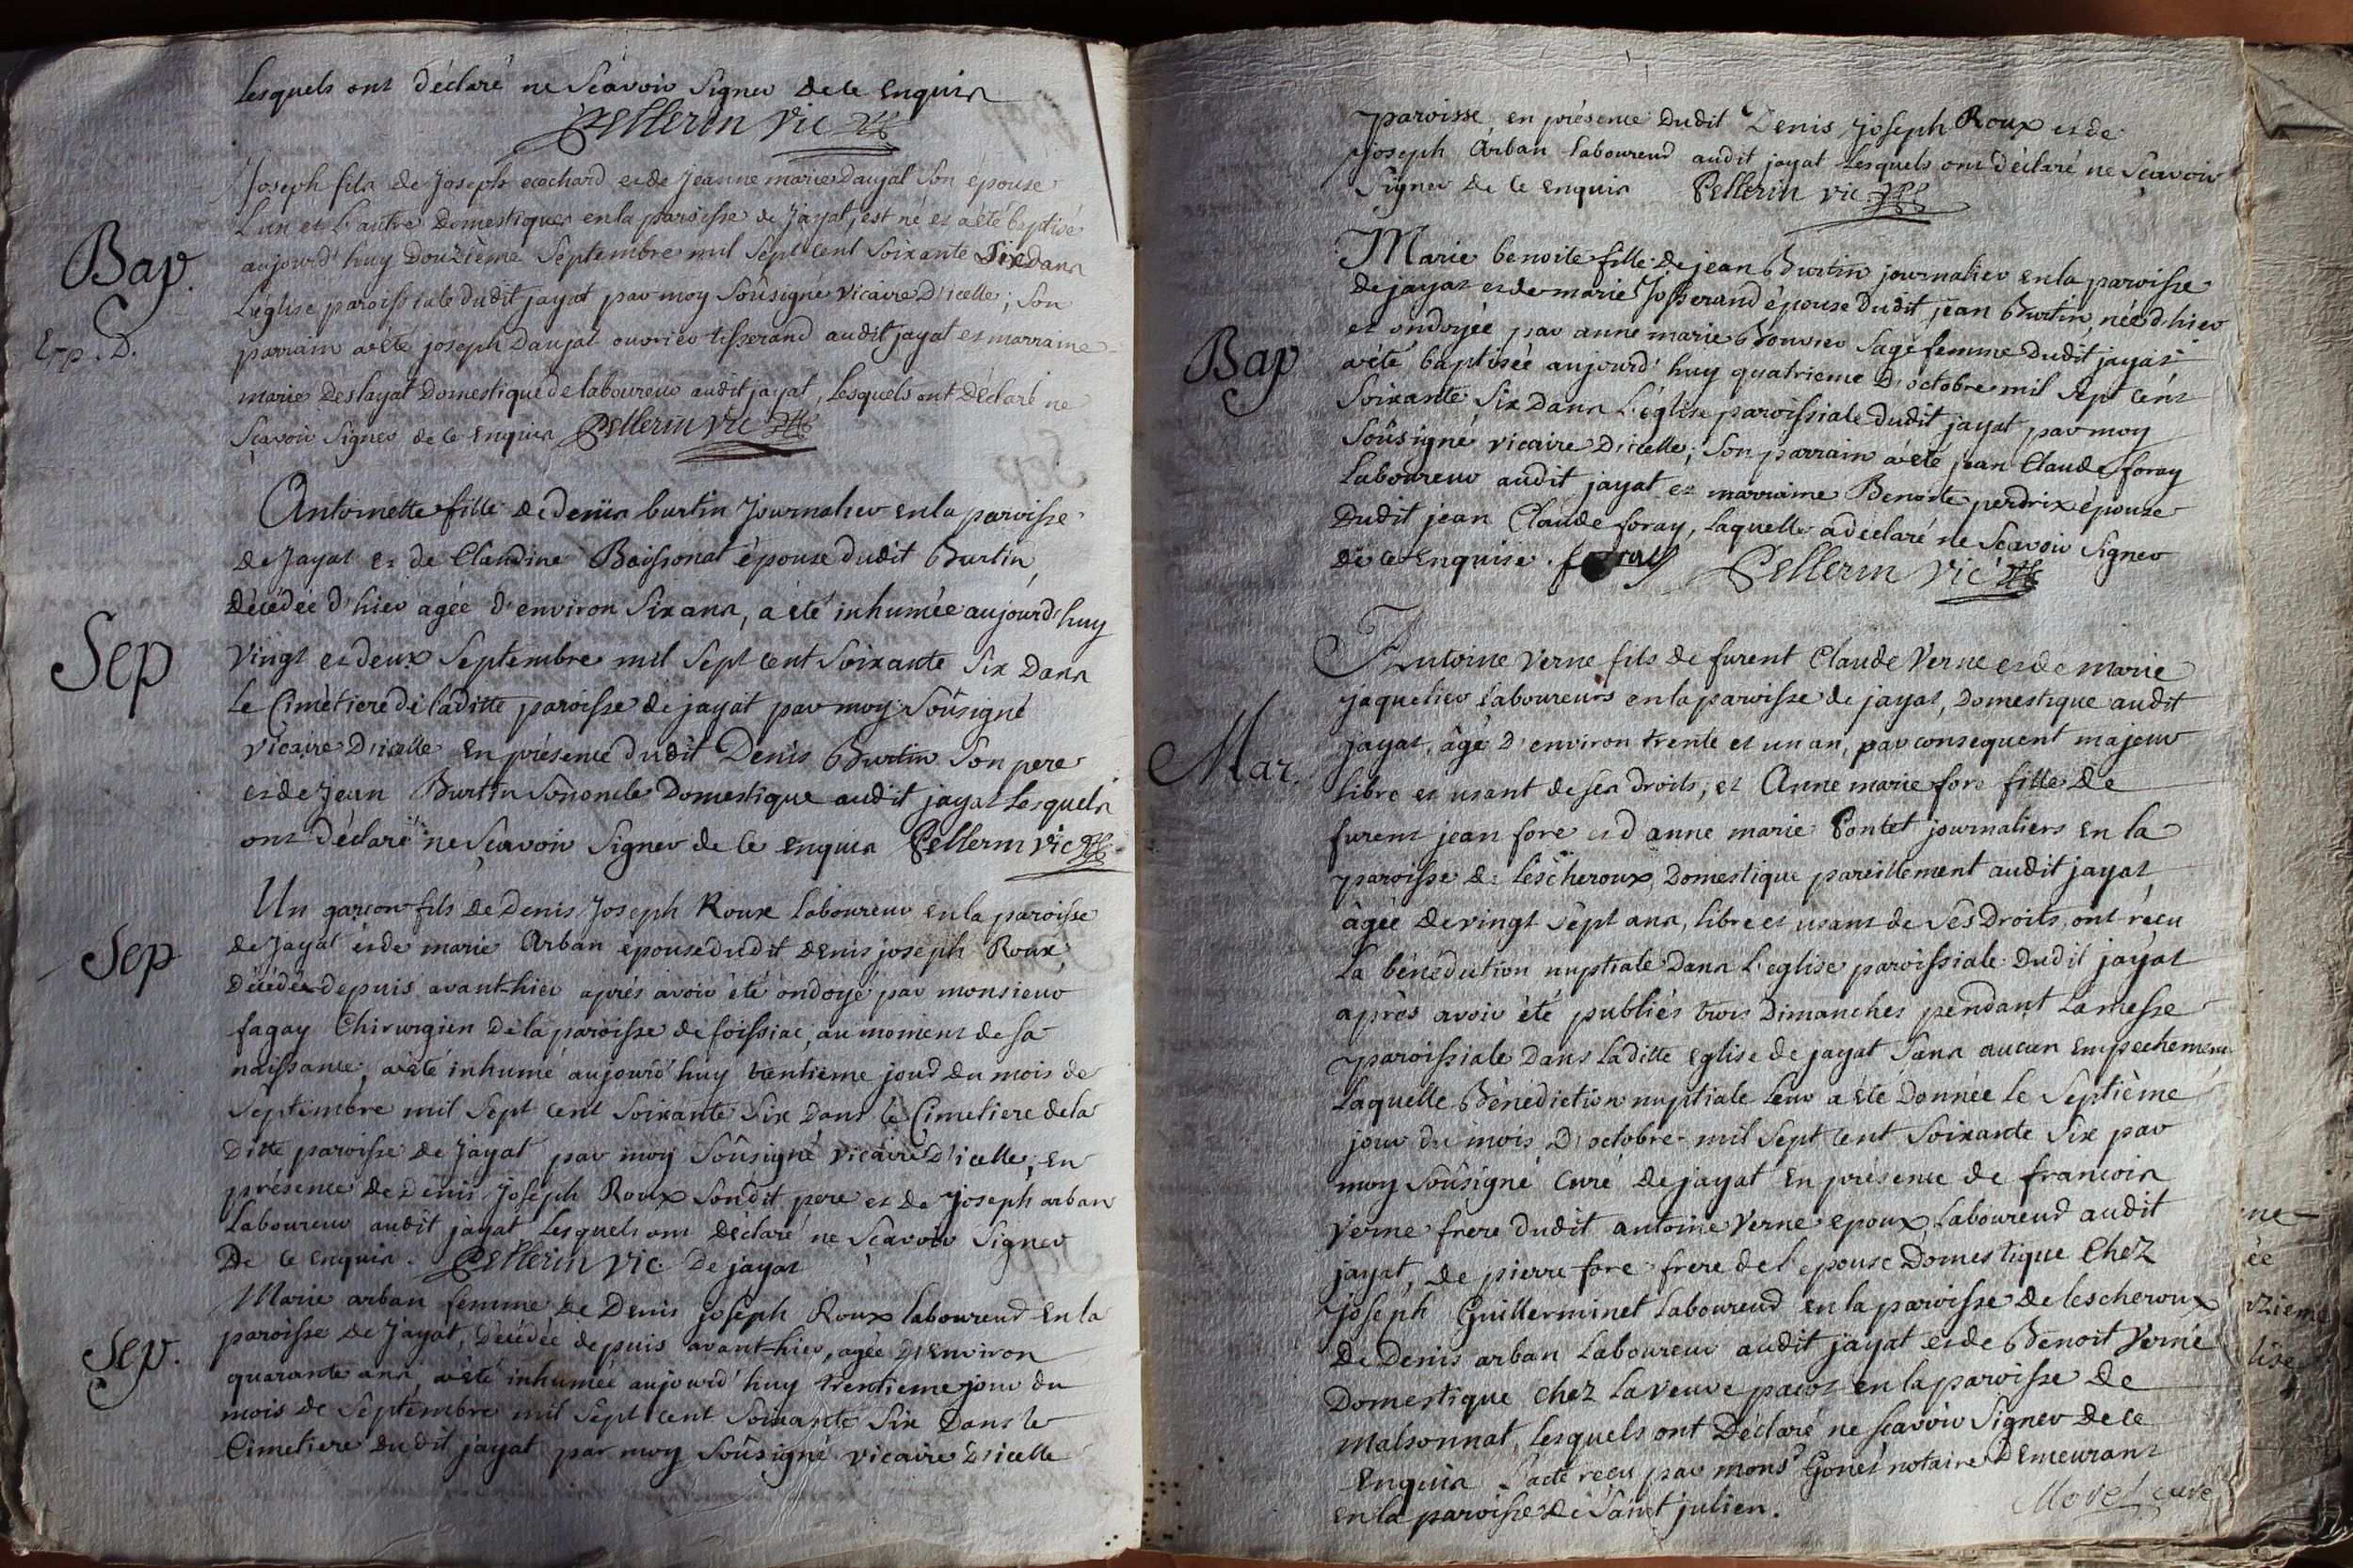 Lesquels ont déclaré ne Scavoir Signer de ce Enquis
Pellerin vic
Joseph fils de Joseph cochard et de Jeanne marie Daujat Son épouse
L'un et L'autre Domestiques en la paroisse de Jayat, est né et a été baptisé
Bap.
aujourd'huy Douzième Septembre mil Sept cent Soixante Six dans
L'église paroissiale dudit jayat par moy Soûsigné vicaire D'icelle; Son
parrain a été joseph Daujat ouvrier tisserand audit jayat et marraine
marie Deslayat Domestique de laboureur audit jayat, Lesquels ont Déclaré ne
Scavoir Signer de ce Enquis Pellerin vic
Antoinette fille de denis burtin Journalier en la paroisse
de Jayat et de Claudine Boissonat épouse dudit Burtin,
décédée d'hier agée d'environ Six ans, a été inhumée aujourd'huy
Sep
vingt et deux Septembre mil Sept cent Soixante Six Dans
Le Cimètiere de laditte paroisse de jayat par moy Soûsigné
vicaire D'icelle en présence dudit Denis Burtin Son pere
et de Jean Burtin Son oncle Domestique audit jayat Lesquels
ont déclaré ne Scavoir Signer de ce enquis Pellerin vic
Un garcon fils de Denis Joseph Roux Laboureur en la paroisse
Sep
de Jayat et de marie Arban épouse dudit denis joseph Roux,
Décédé depuis avant-hier après avoir été ondoyé par monsieur
fagay Chirurgien de la paroisse de foissiac, au moment de sa
naissance, a été inhumé aujourd'huy trentieme jour du mois de
Septembre mil Sept cent Soixante Six dans le Cimetiere de la
Ditte paroisse de Jayat par moy Soûsigné vicaire d'icelle; en
présence de Denis Joseph Roux Sondit pere et de Joseph arban
Laboureur audit jayat Lesquels ont déclaré ne Scavoir Signer
De ce enquis. Pellerin vic. De jayat
Marie arban femme de Denis joseph Roux laboureur en la
Sep.
paroisse de Jayat, Décédée depuis avant-hier, agée D'environ
quarante ans, a été inhumée aujourd'huy trentieme jour du
mois de Septembre mil Sept cent Soixante Six Dans le
Cimetiere dudit jayat par moy Soûsigné vicaire D'icelle
paroisse en présence Dudit Denis Joseph Roux et de
joseph Arban Laboureur audit jayat Lesquels ont déclaré ne Scavoir
Signer de ce enquis Pellerin vic
Marie benoite fille de jean Burtin journalier en la paroisse
de jayat et de marie Josserand épouse dudit jean Burtin, née d'hier
et ondoyée par anne marie Bouvier Sage femme dudit jayat,
Bap
a été baptisée aujourd'huy quatrieme D'octobre mil Sept cent
Soixante Six Dans L'église paroissiale dudit jayat par moy
Soûsigné vicaire D'icelle; Son parrain a été jean Claude foray
Laboureur audit jayat et marraine Benoite perdrix épouse
Dudit jean Claude foray, Laquelle a déclaré ne Scavoir Signer
de ce Enquise. Pellerin vic
Antoine Verne fils de furent Claude Verne et de marie
jaquelier Laboureurs en la paroisse de jayat, Domestique audit
Mar.
jayat, âgé D'environ trente et un an, par consequent majeur
libre et usant de ses droits, et Anne marie fore fille de
furent jean fore et d'anne marie Pontet journaliers en la
paroisse de Lescheroux, Domestique pareillement audit jayat,
âgée de vingt Sept ans, libre et usant de Ses Droits, ont recu
La bénédiction nuptiale Dans L'eglise paroissiale dudit jayat
après avoir été publiés trois Dimanches pendant La messe
paroissiale Dans laditte eglise de jayat Sans aucun empechement
Laquelle Bénédiction nuptiale Leur a été Donnée Le Septième
jour du mois D'octobre mil Sept cent Soixante Six par
moy Soûsigné Curé de jayat en présence de francois
Verne frere dudit antoine Verne epoux, Laboureur audit
jayat, de pierre fore frere de l'epouse Domestique Chez
joseph Guillerminet Laboureur en la paroisse de lescheroux
De Denis arban Laboureur audit jayat et de Benoit Verne
Domestique chez La veuve pacot en la paroisse de
malsonnat, Lesquels ont Déclaré ne scavoir Signer de ce
Enquis L'acte recu par mons Gonet notaire Demeurant
en la paroisse de Saint julien.